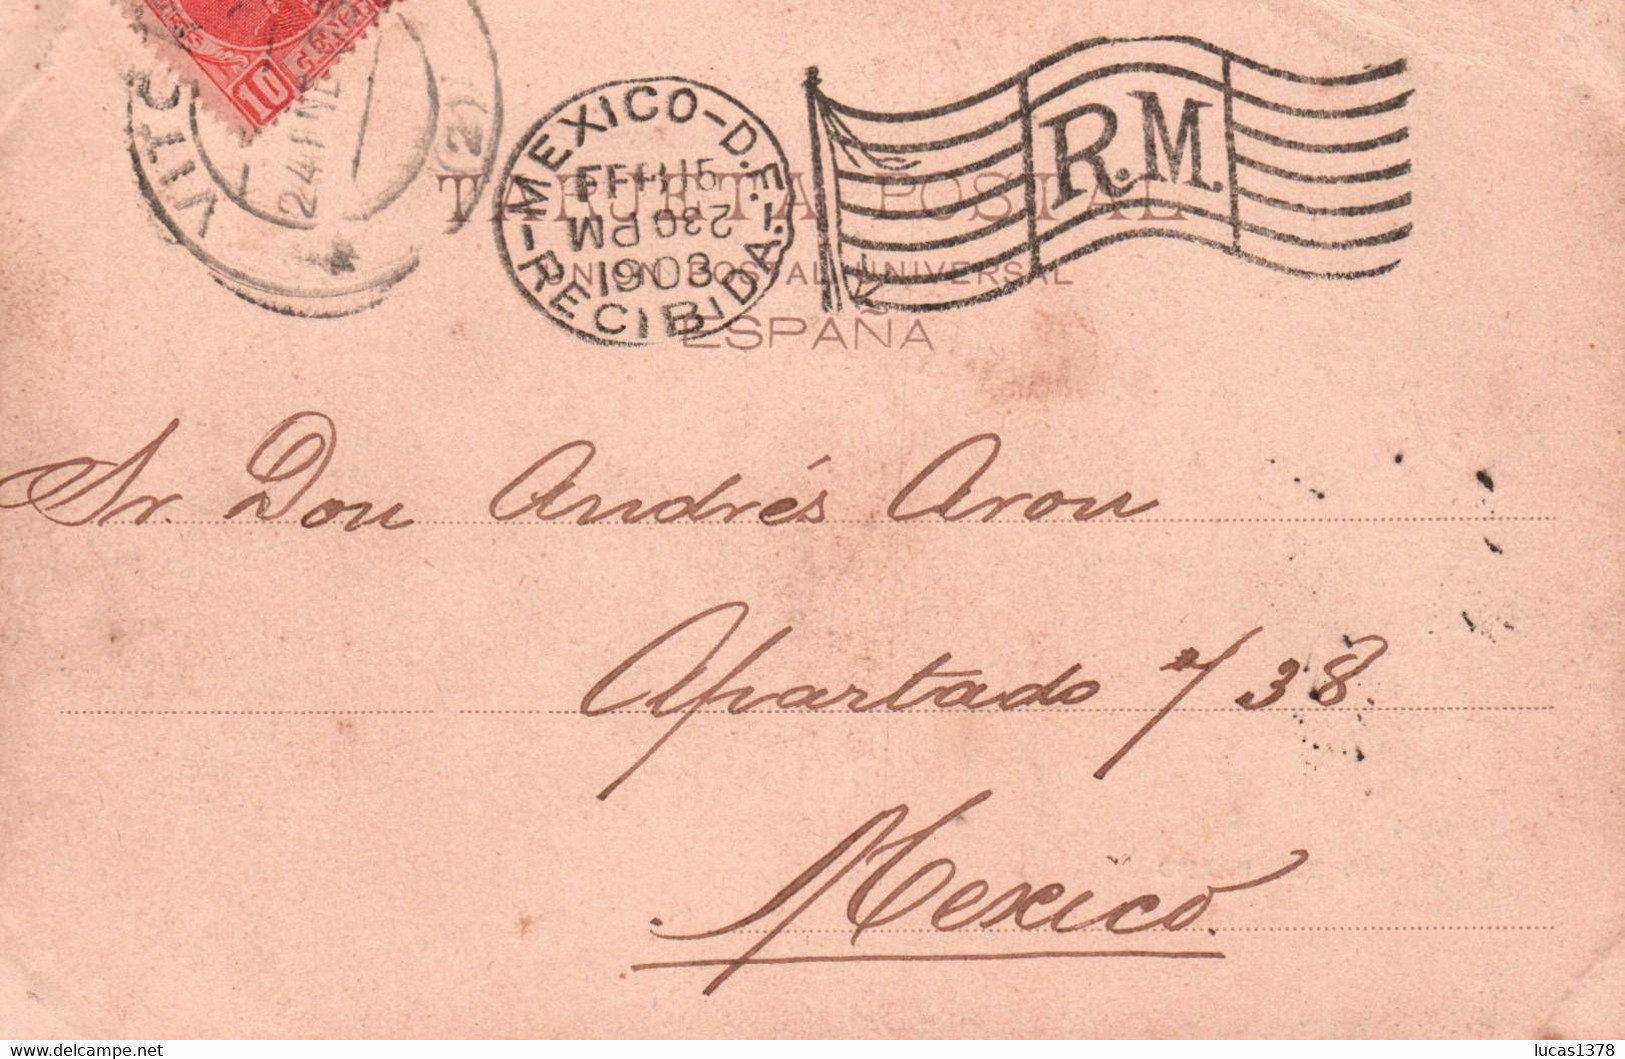 10
VITO
24 ENE
(2)
MEXICO-D.F.
FEB 15
230 PM
1903
RECIBIDA.
R.M.
TARJETA POSTAL
UNION POSTAL UNIVERSAL
ESPAÑA
Sr. Don Andrés Arou
Apartado 738.
Mexico.
lucas1378